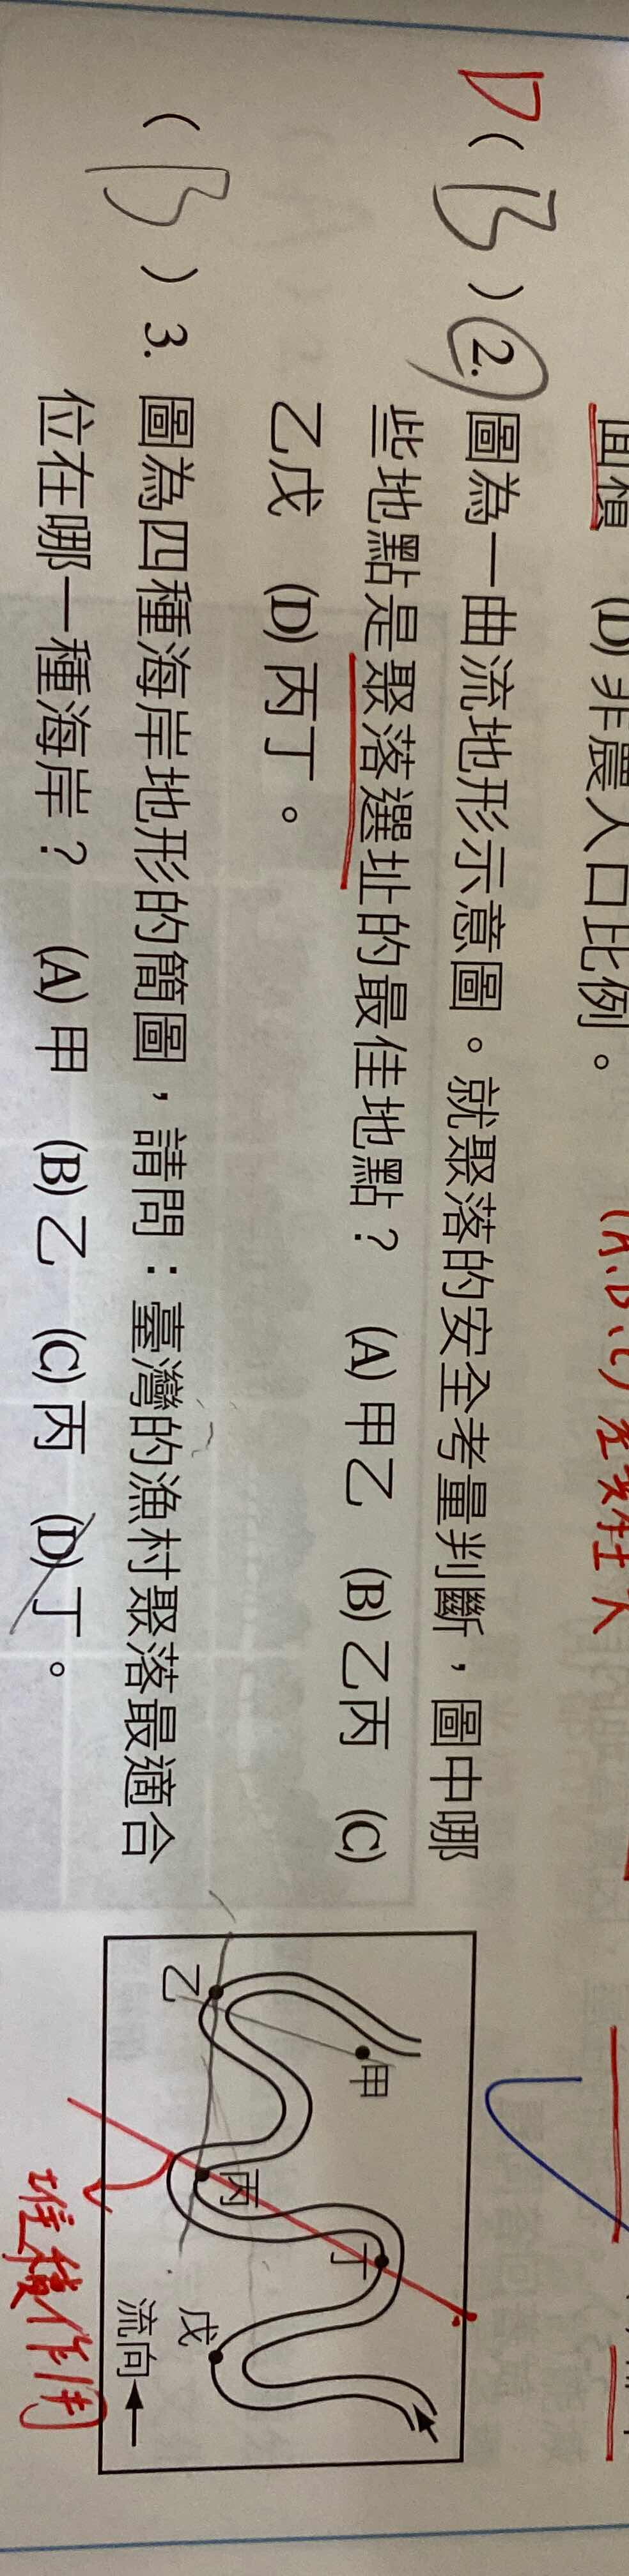 面積 (D)非農人口比例。
D(B)2. 圖為一曲流地形示意圖。就聚落的安全考量判斷，圖中哪
些地點是聚落選址的最佳地點？ (A)甲乙 (B)乙丙 (C)
乙戊 (D)丙丁。
(B)3. 圖為四種海岸地形的簡圖，請問：臺灣的漁村聚落最適合
位在哪一種海岸？ (A)甲 (B)乙 (C)丙 (D)丁。
甲
乙
丙
丁
戊
流向
堆積作用